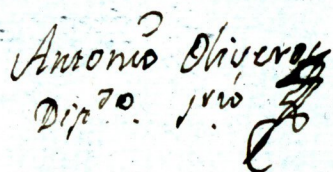 Antonio Oliveros
Dip.do srio